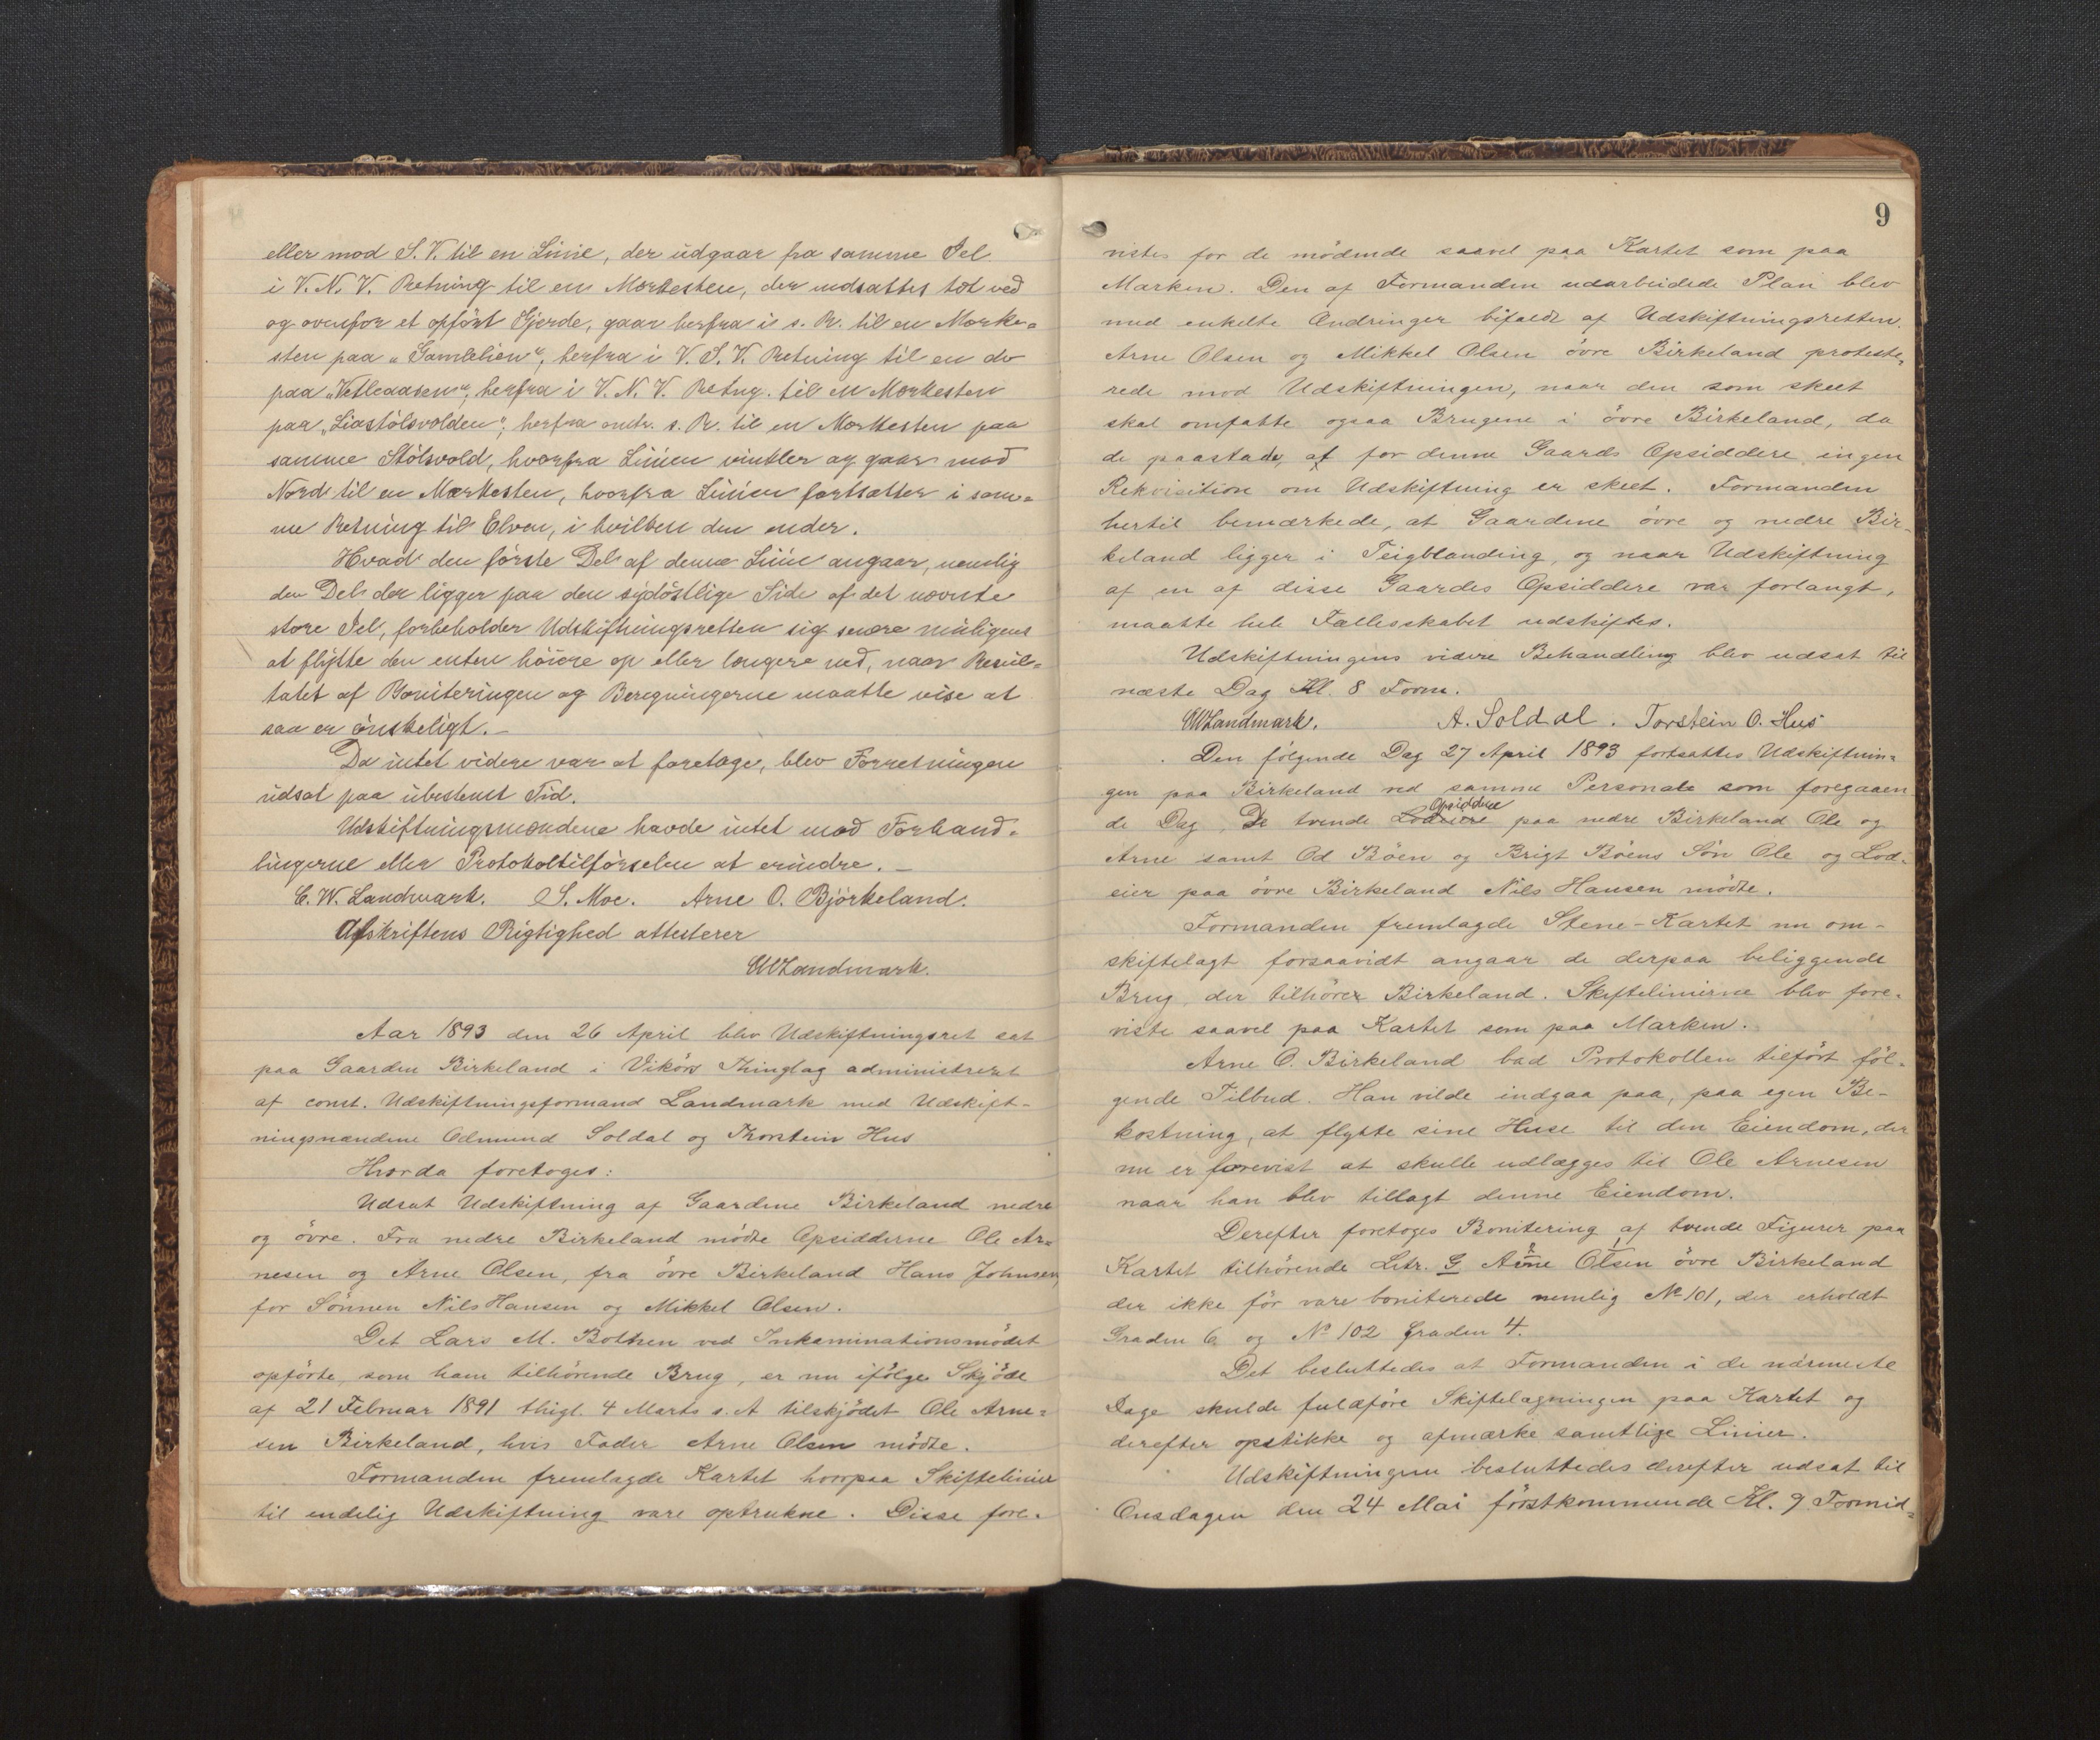 eller mod S. V. til en Linie, der udgaar fra samme Jel
i V. N. V. Retning til en Mærkesten, der nedsattes tæt ved
og ovenfor et opført Gjerde, gaar herfra i s. R. til en Mærke-
sten paa „Gamlelien“, herfra i V. S. V. Retning til en do
paa „Vetleaasen“, herfra i V. N. V. Retng. til en Mærkesten
paa „Liastölsvolden“, herfra omtr. s. R. til en Mærkesten paa
samme Stölsvold, hvorfra Linien vinkler og gaar mod
Nord til en Mærkesten, hvorfra Linien fortsætter i sam-
me Retning til Elven, i hvilken den ender.
Hvad den förste Del af denne Linie angaar, nemlig
den Del der ligger paa den sydöstlige Side af det nævnte
store Jel, forbeholder Udskiftningsretten sig senere muligens
at flytte den enten höiere op eller længere ned, naar Resul-
tatet af Boniteringen og Beregningerne maatte vise at
saa er önskeligt.-
Da intet videre var at foretage, blev Forretningen
udsat paa ubestemt Tid.
Udskiftningsmændene havde intet mod Forhand-
lingerne eller Protokoltilförselen at erindre.-
C. W. Landmark. S. Moe. Arne O. Björkeland.
Afskriftens Rigtighed attesterer
CWLandmark.
Aar 1893 den 26 April blev Udskiftningsret sat
paa Gaarden Birkeland i Vikörs Thinglag administreret
af const. Udskiftningsformand Landmark med Udskift-
ningsmændene Odmund Soldal og Thorstein Hus
Hvorda foretoges:
Udsat Udskiftning af Gaardene Birkeland nedre
og övre. Fra nedre Birkeland mödte Opsidderne Ole Ar-
nesen og Arne Olsen, fra övre Birkeland Hans Johnsen,
for Sönnen Nils Hansen og Mikkel Olsen.
Det Lars M. Bothen ved Inkaminationsmödet
opförte som ham tilhörende Brug, er nu ifölge Skjöde
af 21 Februar 1891 thigl. 4 Marts s. A tilskjödet Ole Arne-
sen Birkeland, hvis Fader Arne Olsen mödte.
Formanden fremlagde Kartet hvorpaa Skiftelinier
til endelig Udskiftning vare optrukne. Disse fore-
9
vistes for de mödende saavel paa Kartet som paa
Marken. Den af Formanden udarbeidede Plan blev
med enkelte Ændringer bifaldt af Udskiftningsretten.
Arne Olsen og Mikkel Olsen övre Birkeland proteste-
rede mod Udskiftningen, naar den som skeet
skal omfatte ogsaa Brugene i övre Birkeland, da
de paastade, at for denne Gaards Opsiddere ingen
Rekvisition om Udskiftning er skeet. Formanden
hertil bemærkede, at Gaardene övre og nedre Bir-
keland ligger i Teigblanding, og naar Udskiftning
af en af disse Gaardes Opsiddere var forlangt,
maatte hele Fællesskabet udskiftes.
Udskiftningens videre Behandling blev udsat til
næste Dag Kl. 8 Form.
CWLandmark. A. Soldal. Torstein O. Hus
Den fölgende Dag 27 April 1893 fortsattes Udskiftnin-
gen paa Birkeland ved samme Personale som foregaaen
Opsiddere
de Dag. De tvende Lodeiere paa nedre Birkeland Ole og
Arne samt Od Böen og Brigt Böens Sön Ole og Lod-
eier paa övre Birkeland Nils Hansen mödte.
Formanden fremlagde Stene-Kartet nu om-
skiftelagt forsaavidt angaar de derpaa beliggende
Brug, der tilhörer Birkeland. Skiftelinierne blev fore-
viste saavel paa Kartet som paa Marken.
Arne O. Birkeland bad Protokollen tilfört föl-
gende Tilbud. Han vilde indgaa paa, paa egen Be-
kostning, at flytte sine Huse til den Eiendom, der
nu er forevist at skulle udlægges til Ole Arnesen
naar han blev tillagt denne Eiendom.
Derefter foretoges Bonitering af tvende Figurer paa
Kartet tilhörende Litr. G Arne Olsen övre Birkeland
der ikke för vare boniterede nemlig No 101, der erholdt
Graden 6 og No 102 Graden 4.
Det besluttedes at Formanden i de nærmeste
Dage skulde fuldföre Skiftelægningen paa Kartet og
derefter opstikke og afmærke samtlige Linier.
Udskiftningen besluttedes derefter udsat til
Onsdagen den 24 Mai förstkommende Kl. 9 Formid-